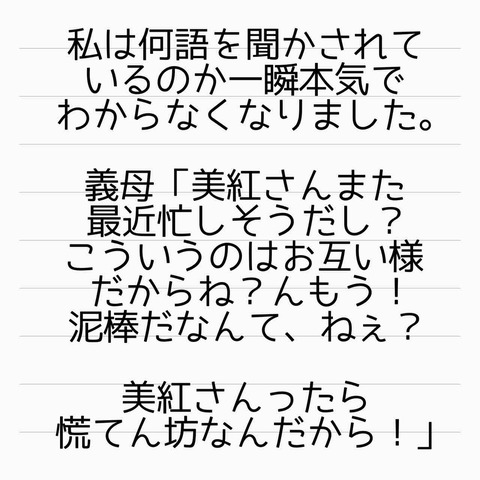 私は何語を聞かされて
いるのか一瞬本気で
わからなくなりました。
義母「美紅さんまた
最近忙しそうだし？
こういうのはお互い様
だからね？んもう！
泥棒だなんて、ねぇ？
美紅さんったら
慌てん坊なんだから！」